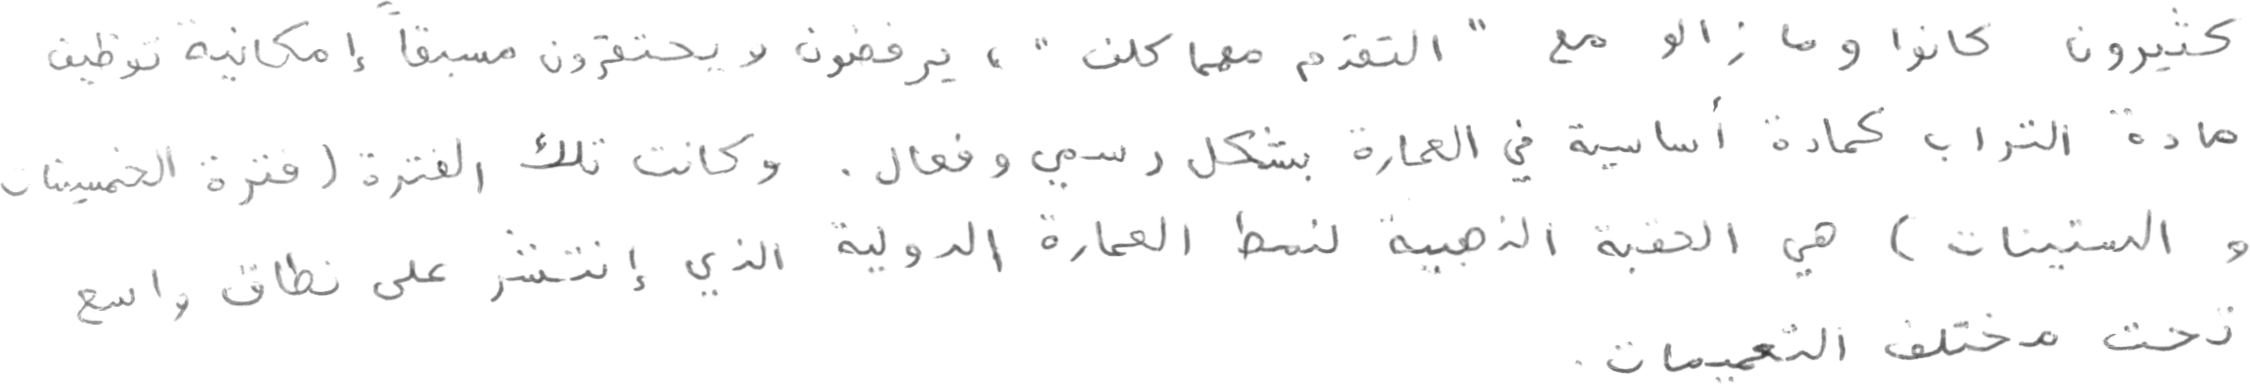 كثيرون كانوا وما زالو مع "التقدم مهما كلف"، يرفضون لا يحتقرون مسبقاً إمكانية توظيف
مادة التراب كمادة أساسية في العمارة بشكل رسمي وفعال. وكانت تلك الفترة (فترة الخمسينات
و الستينات) هي الحقبة الذهبية لنمط العمارة الدولية الذي إنتشر على نطاق واسع
تحت مختلف التعميمات.